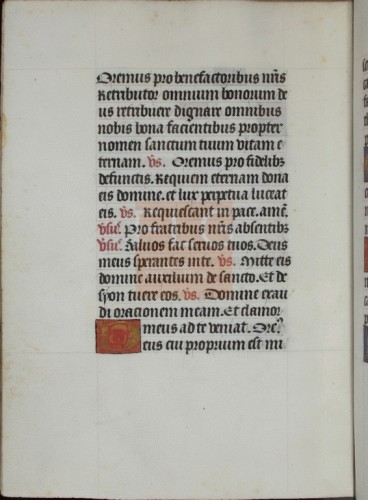 Oremus pro benefactoribus nr̄is
Retributor omnium bonorum de
us retribuere dignare omnibus
nobis bona facientibus propter
nomen sanctum tuum vitam e
ternam. v̄s. Oremus pro fidelibꝫ
defunctis. Requiem eternam dona
eis domine. et lux perpetua luceat
eis. v̄s. Requiescant in pace. amē.
v̄su᷒. Pro fratribus nr̄is absentibꝫ
v̄su᷒. Salvos fac servos tuos. Deus
meus sperantes in te. v̄s. Mitte eis
domine auxilium de sancto. Et de
syon tuere eos. v̄s. Domine exau
di orationem meam. Et clamor
meus ad te veniat. Orem᷒
Deus cui proprium est mi